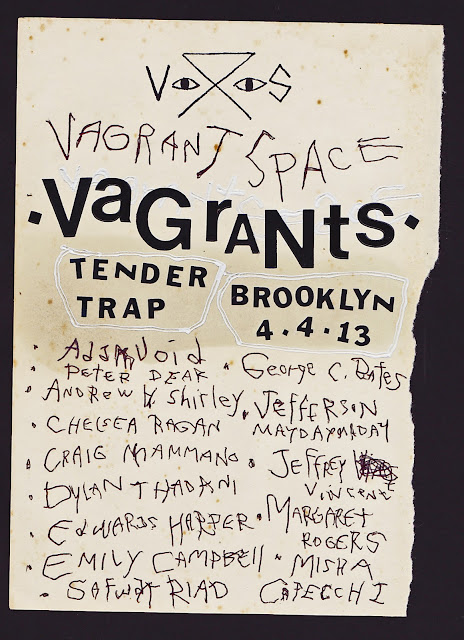 V S
VAGRANT SPACE
·VaGrANts·
TENDER
TRAP
BROOKLYN
4.4.13
· ADAM VOID
· PETER DEAR
· ANDREW H. Shirley
· CHELSEA RAGAN
· CRAIG MAMMANO
· DYLAN THADANI
· EDWARDS HARPER
· EMILY CAMPBEll
· SAFWAT RIAD
· George C. Bates
· JEFFERSON
MAYDAYMAYDAY
· JEFFREY
VINCENT
· MARGARET
ROGERS
· MISHA
CAPECCHI